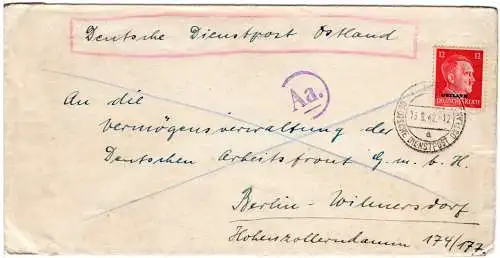 Deutsche Dienstpost Ostland
12 12
OSTLAND
DEUTSCHES REICH
Aa.
An die
Vermögensverwaltung der
Deutschen Arbeitsfront G.m.b.H.
Berlin-Wilmersdorf
Hohenzollerndamm 174/177
DEUTSCHE DIENSTPOST OSTLAND
a